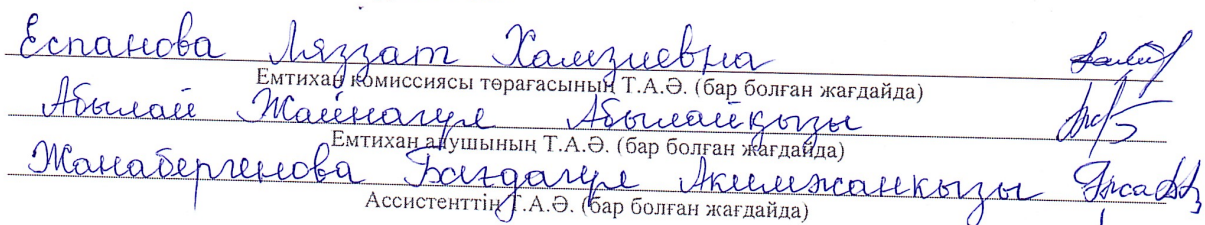 Еспанова Ляззат Хамзиевна
Емтихан комиссиясы төрағасының Т.А.Ә. (бар болған жағдайда)
Абылай Жайнагүл Абылайқызы
Емтихан алушының Т.А.Ә. (бар болған жағдайда)
Жанабергенова Багдагүл Акимжанкызы
Ассистенттің Т.А.Ә. (бар болған жағдайда)